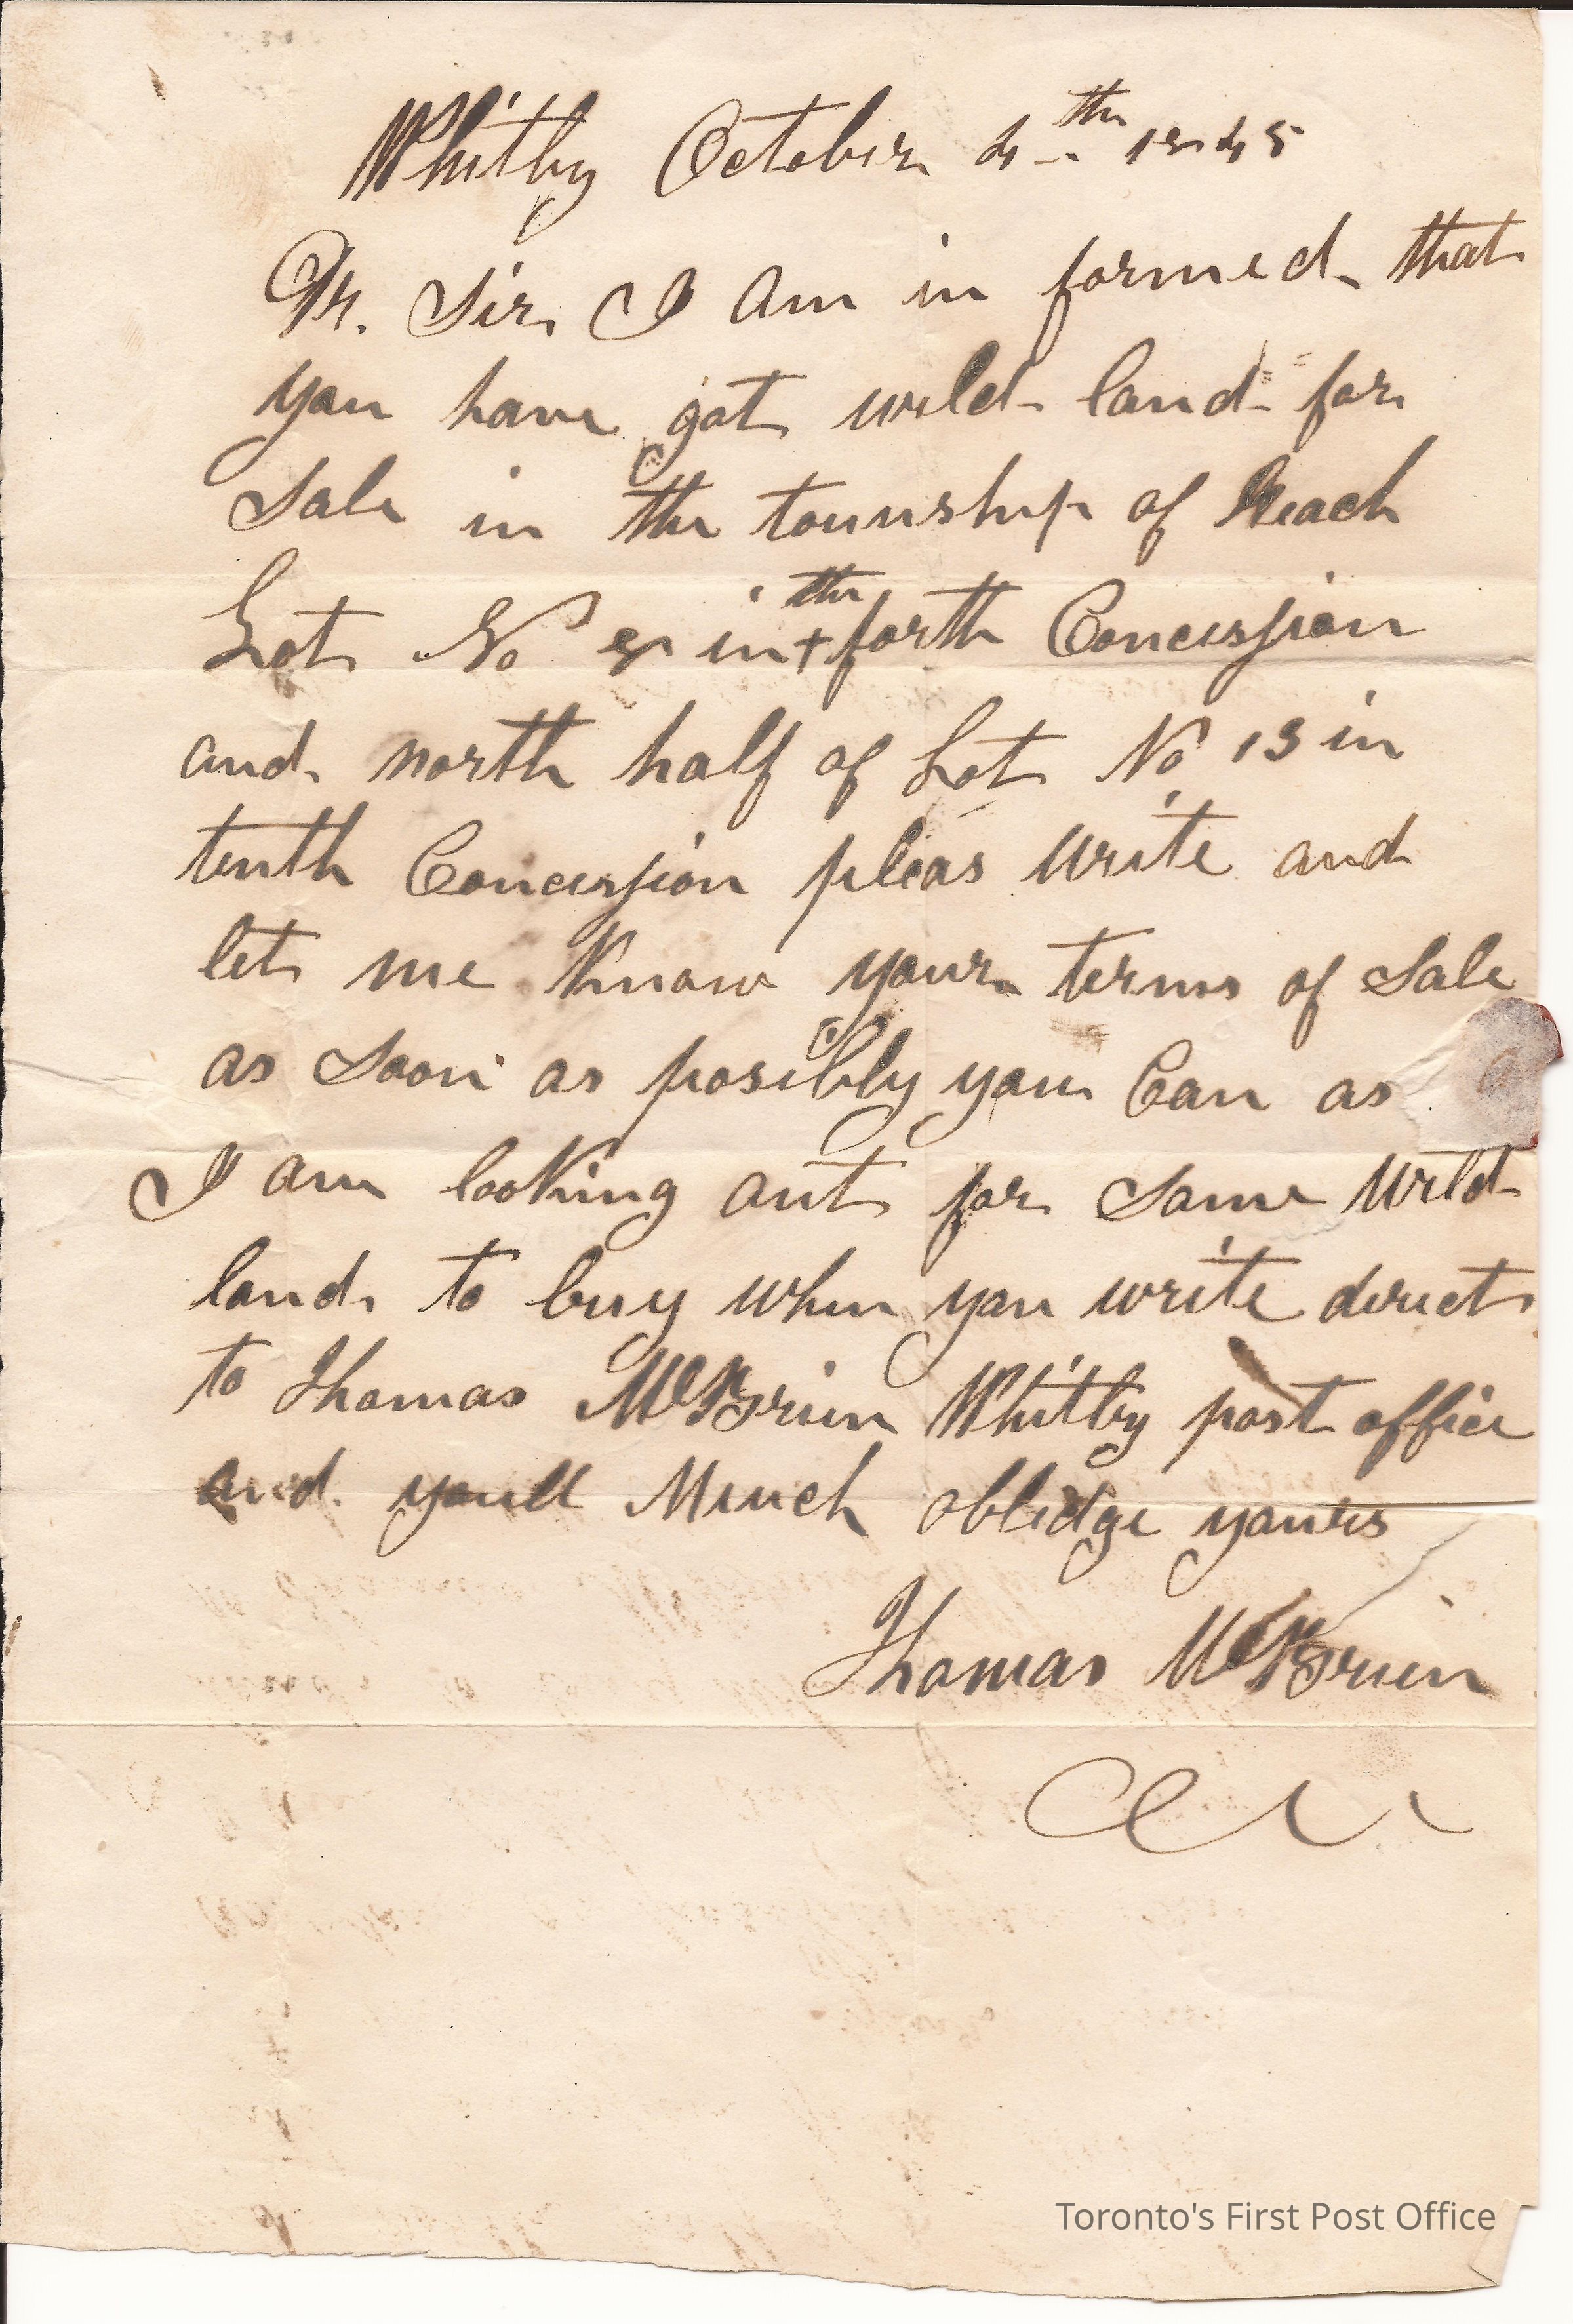 Whitby October 4th 1845
Dr. Sir I am in formed that
you have got wild land for
Sale in the township of Reach
Lot No 8 in + the forth Concession
and north half of Lot No 13 in
tenth Concession pleas write and
let me Know your terms of Sale
as Soon as posibly you Can as
I am looking out for Some Wild
land to buy when you write direct
to Thomas McBrien Whitby post office
and youll Much oblidge yours
Thomas McBrien
Toronto's First Post Office